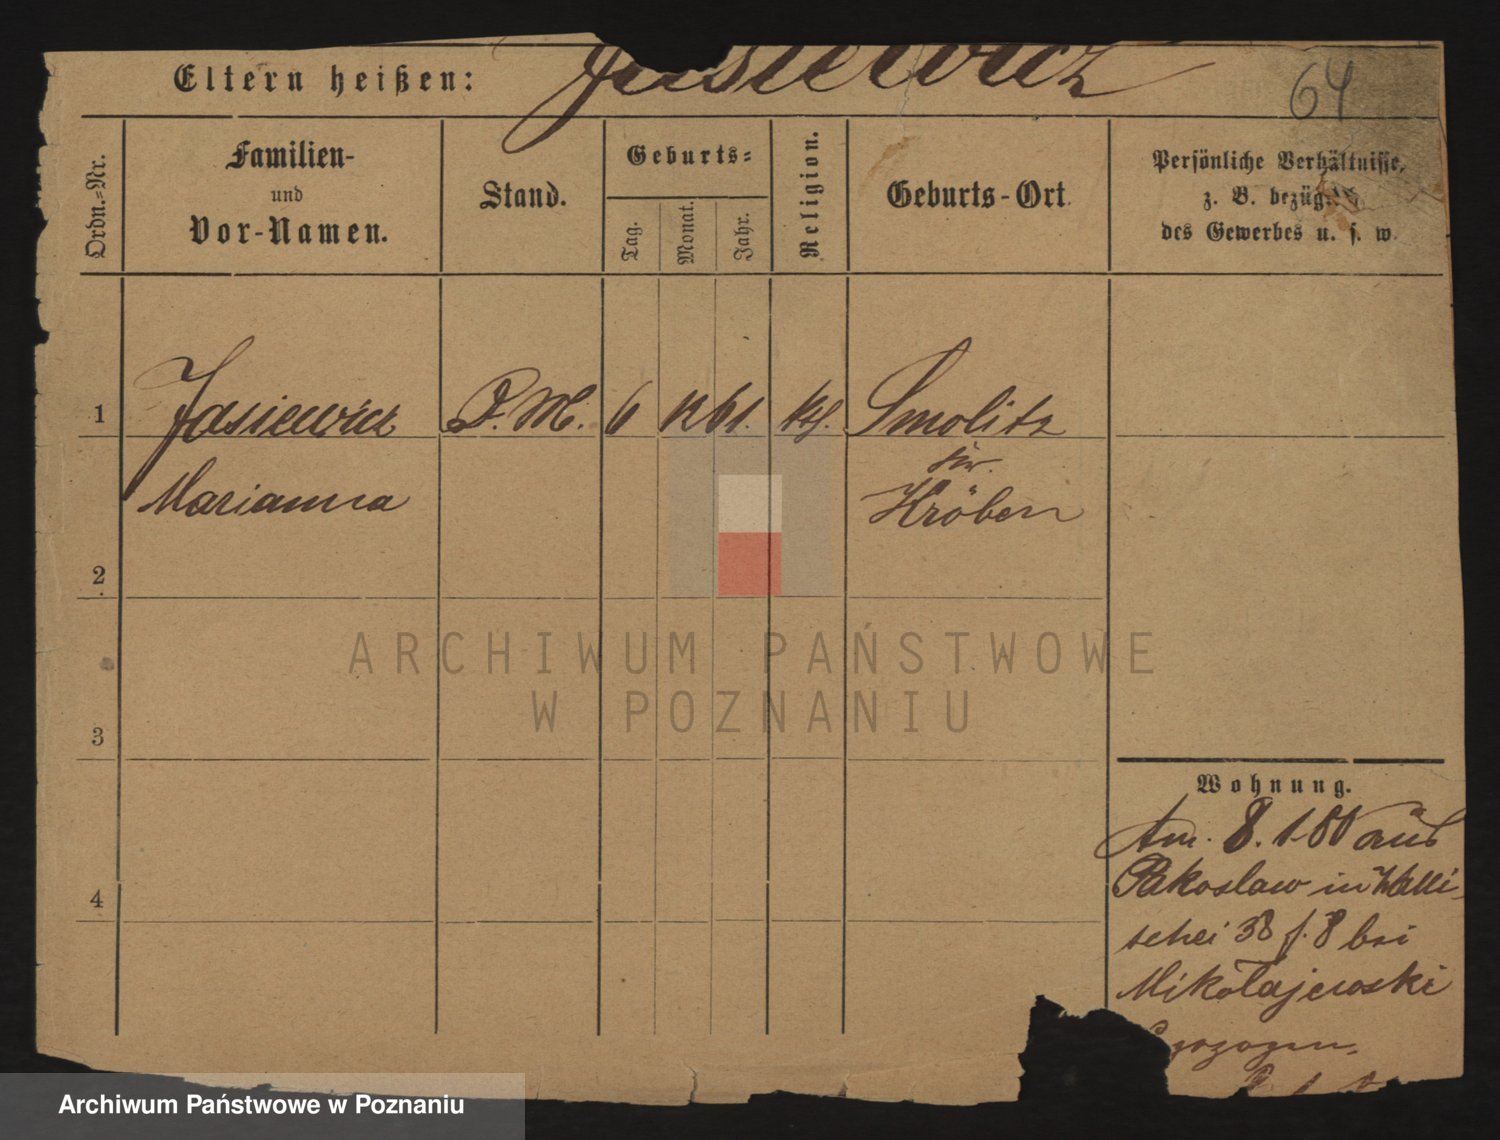 Eltern heißen: Jasiewicz
64
Ordn.-Nr.
Familien-
und
Vor-Namen.
Stand.
Geburts-
Tag.
Monat.
Jahr.
Religion.
Geburts-Ort.
Persönliche Verhältnisse,
z. B. bezügl.
des Gewerbes u. s. w.
1 Jasiewicz D. M. 6 12 61. kth. Smolitz
Kr.
Marianna Kröben
2
3
4
ARCHIWUM PAŃSTWOWE
W POZNANIU
Wohnung.
Am 8. 1. 80 aus
Pakoslaw in Walli-
schei 38 f. 8 bei
Mikołajewski
gezogen.
Archiwum Państwowe w Poznaniu